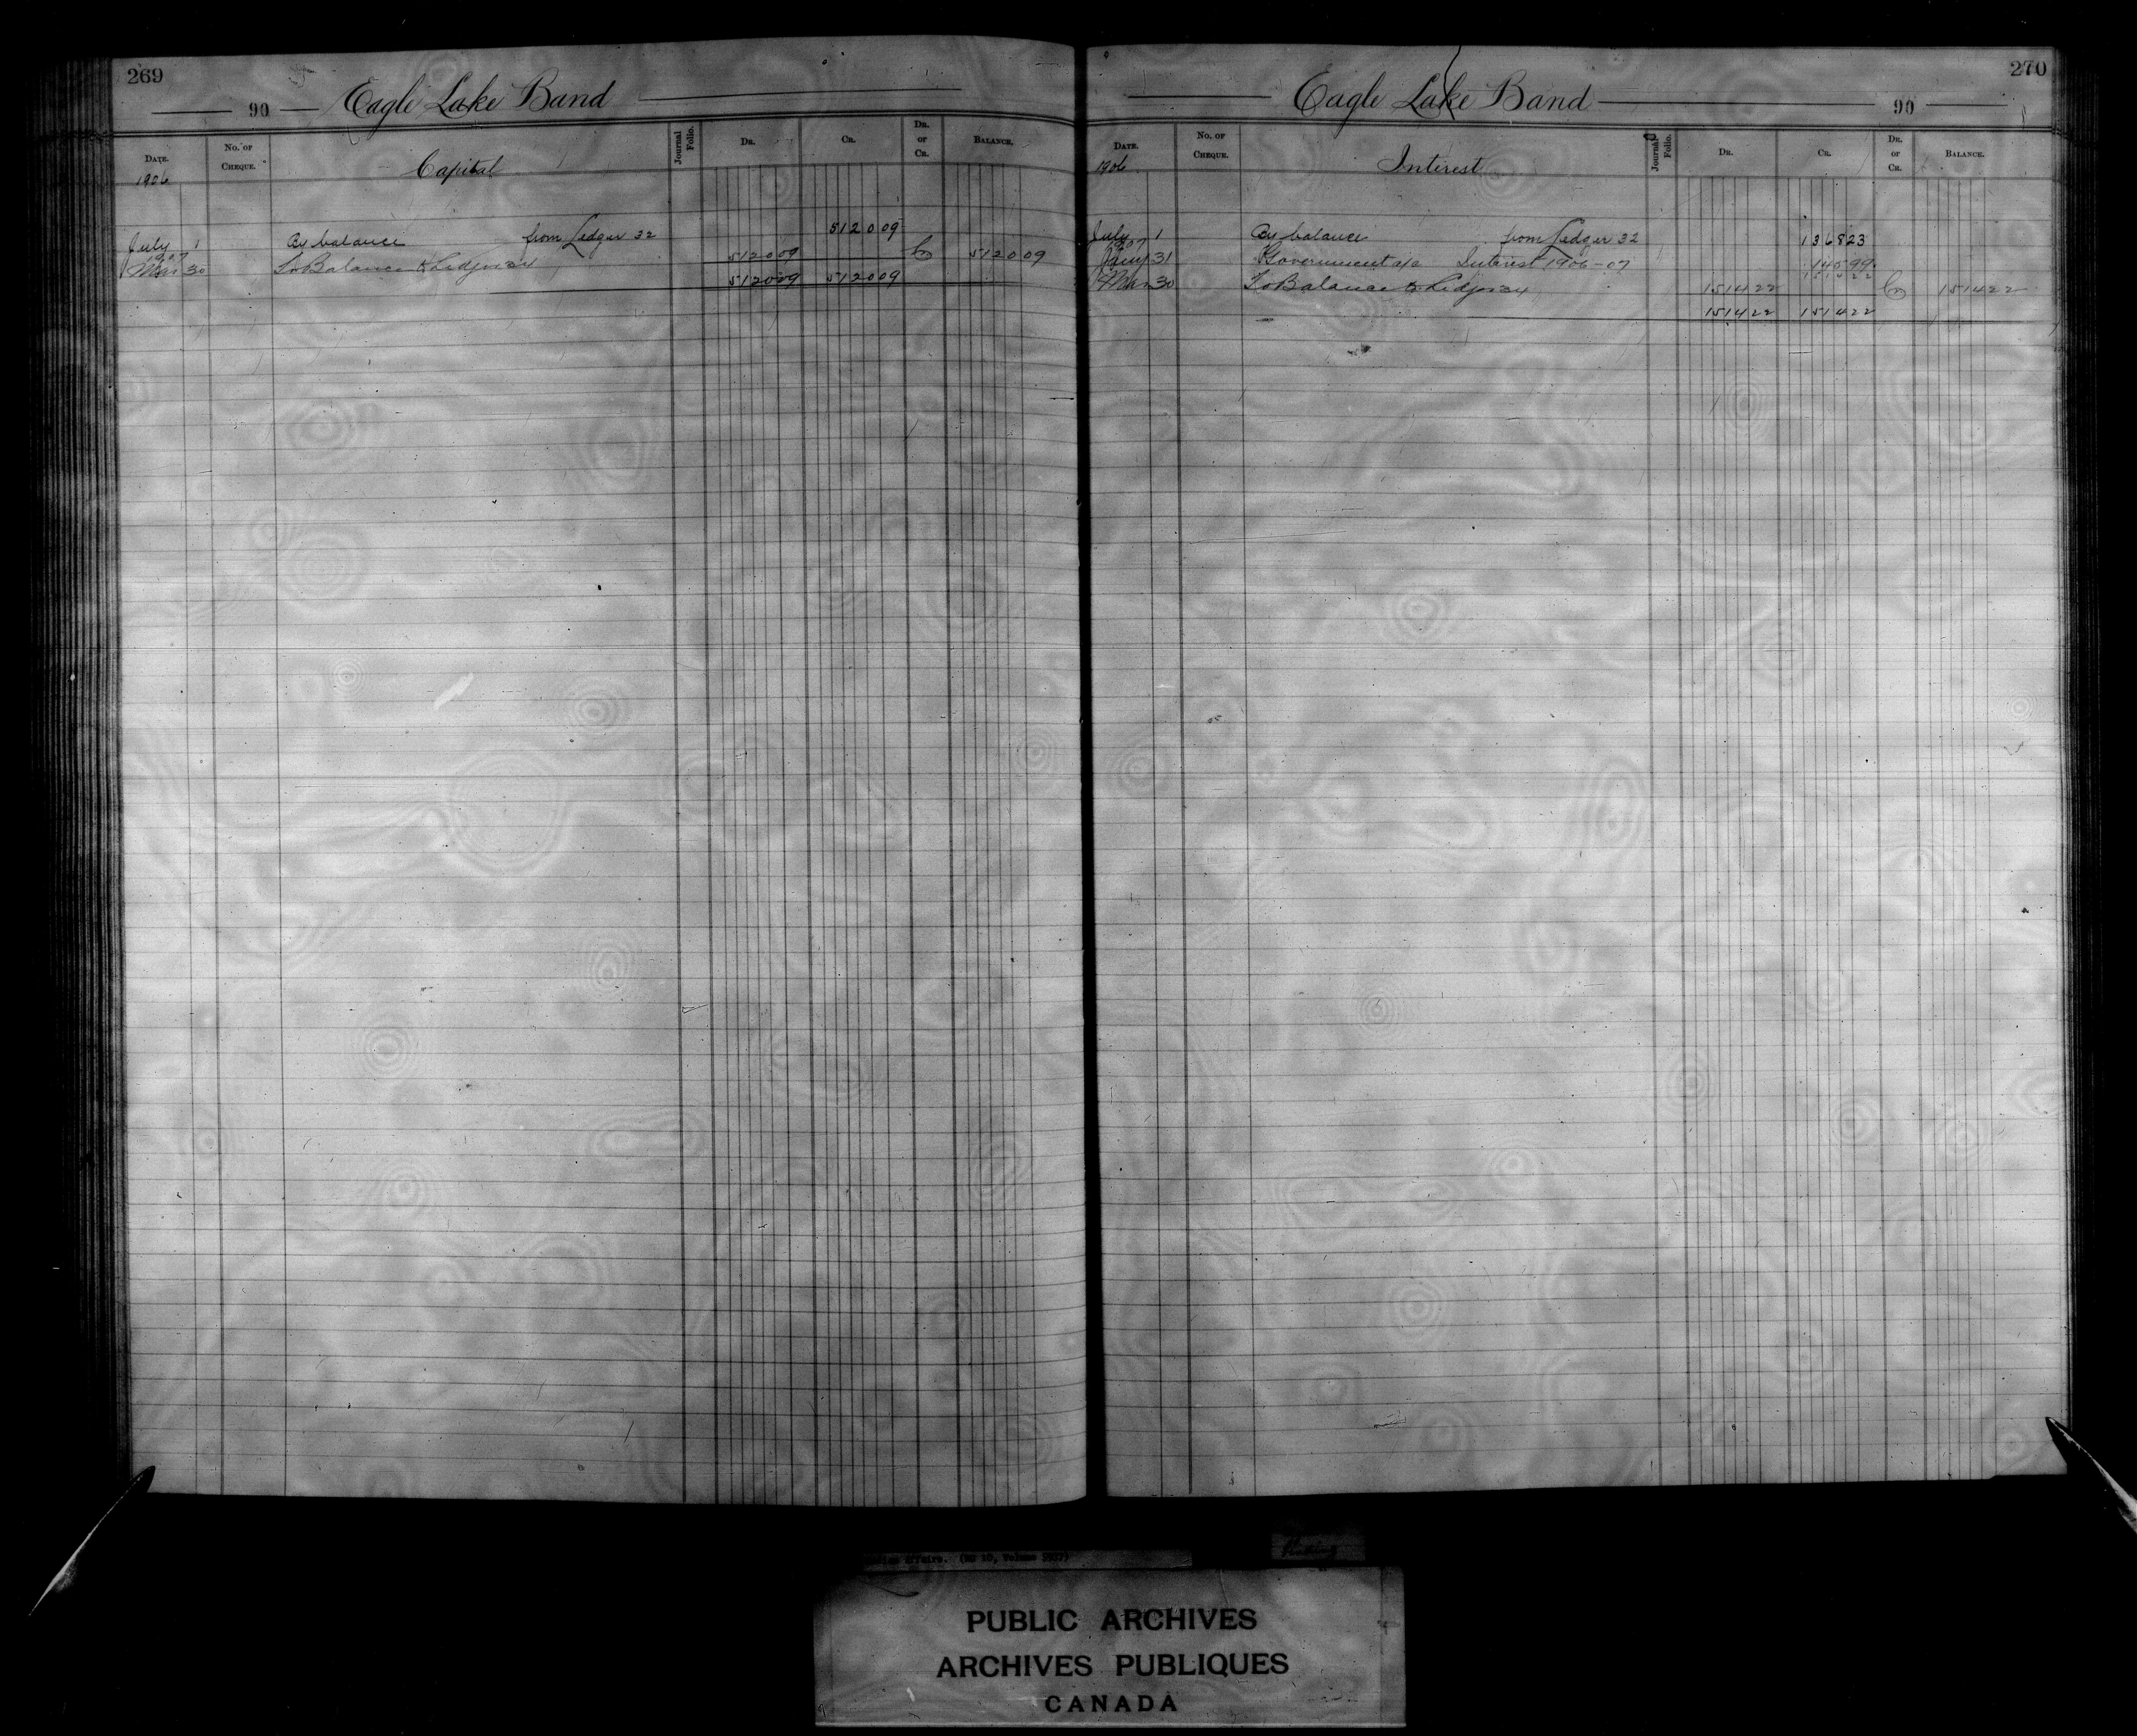 269
90 Eagle Lake Band
Date. No. of Cheque. Capital Journal Folio. Dr. Cr. Dr. or Cr. Balance.
1906
July 1 By balance from Ledger 32 512009
1907
Mar 30 To Balance to Ledger 34 512009 Cr 512009
512009 512009
270
Eagle Lake Band 90
Date. No. of Cheque. Interest Journal Folio. Dr. Cr. Dr. or Cr. Balance.
1906
July 1 By balance from Ledger 32 136823
1907
Jany 31 Government a/c Interest 1906-07 14599
151422
Mar 30 To Balance to Ledger 34 151422 Cr 151422
151422 151422
Affairs. (RG 10, Volume
PUBLIC ARCHIVES
ARCHIVES PUBLIQUES
CANADA